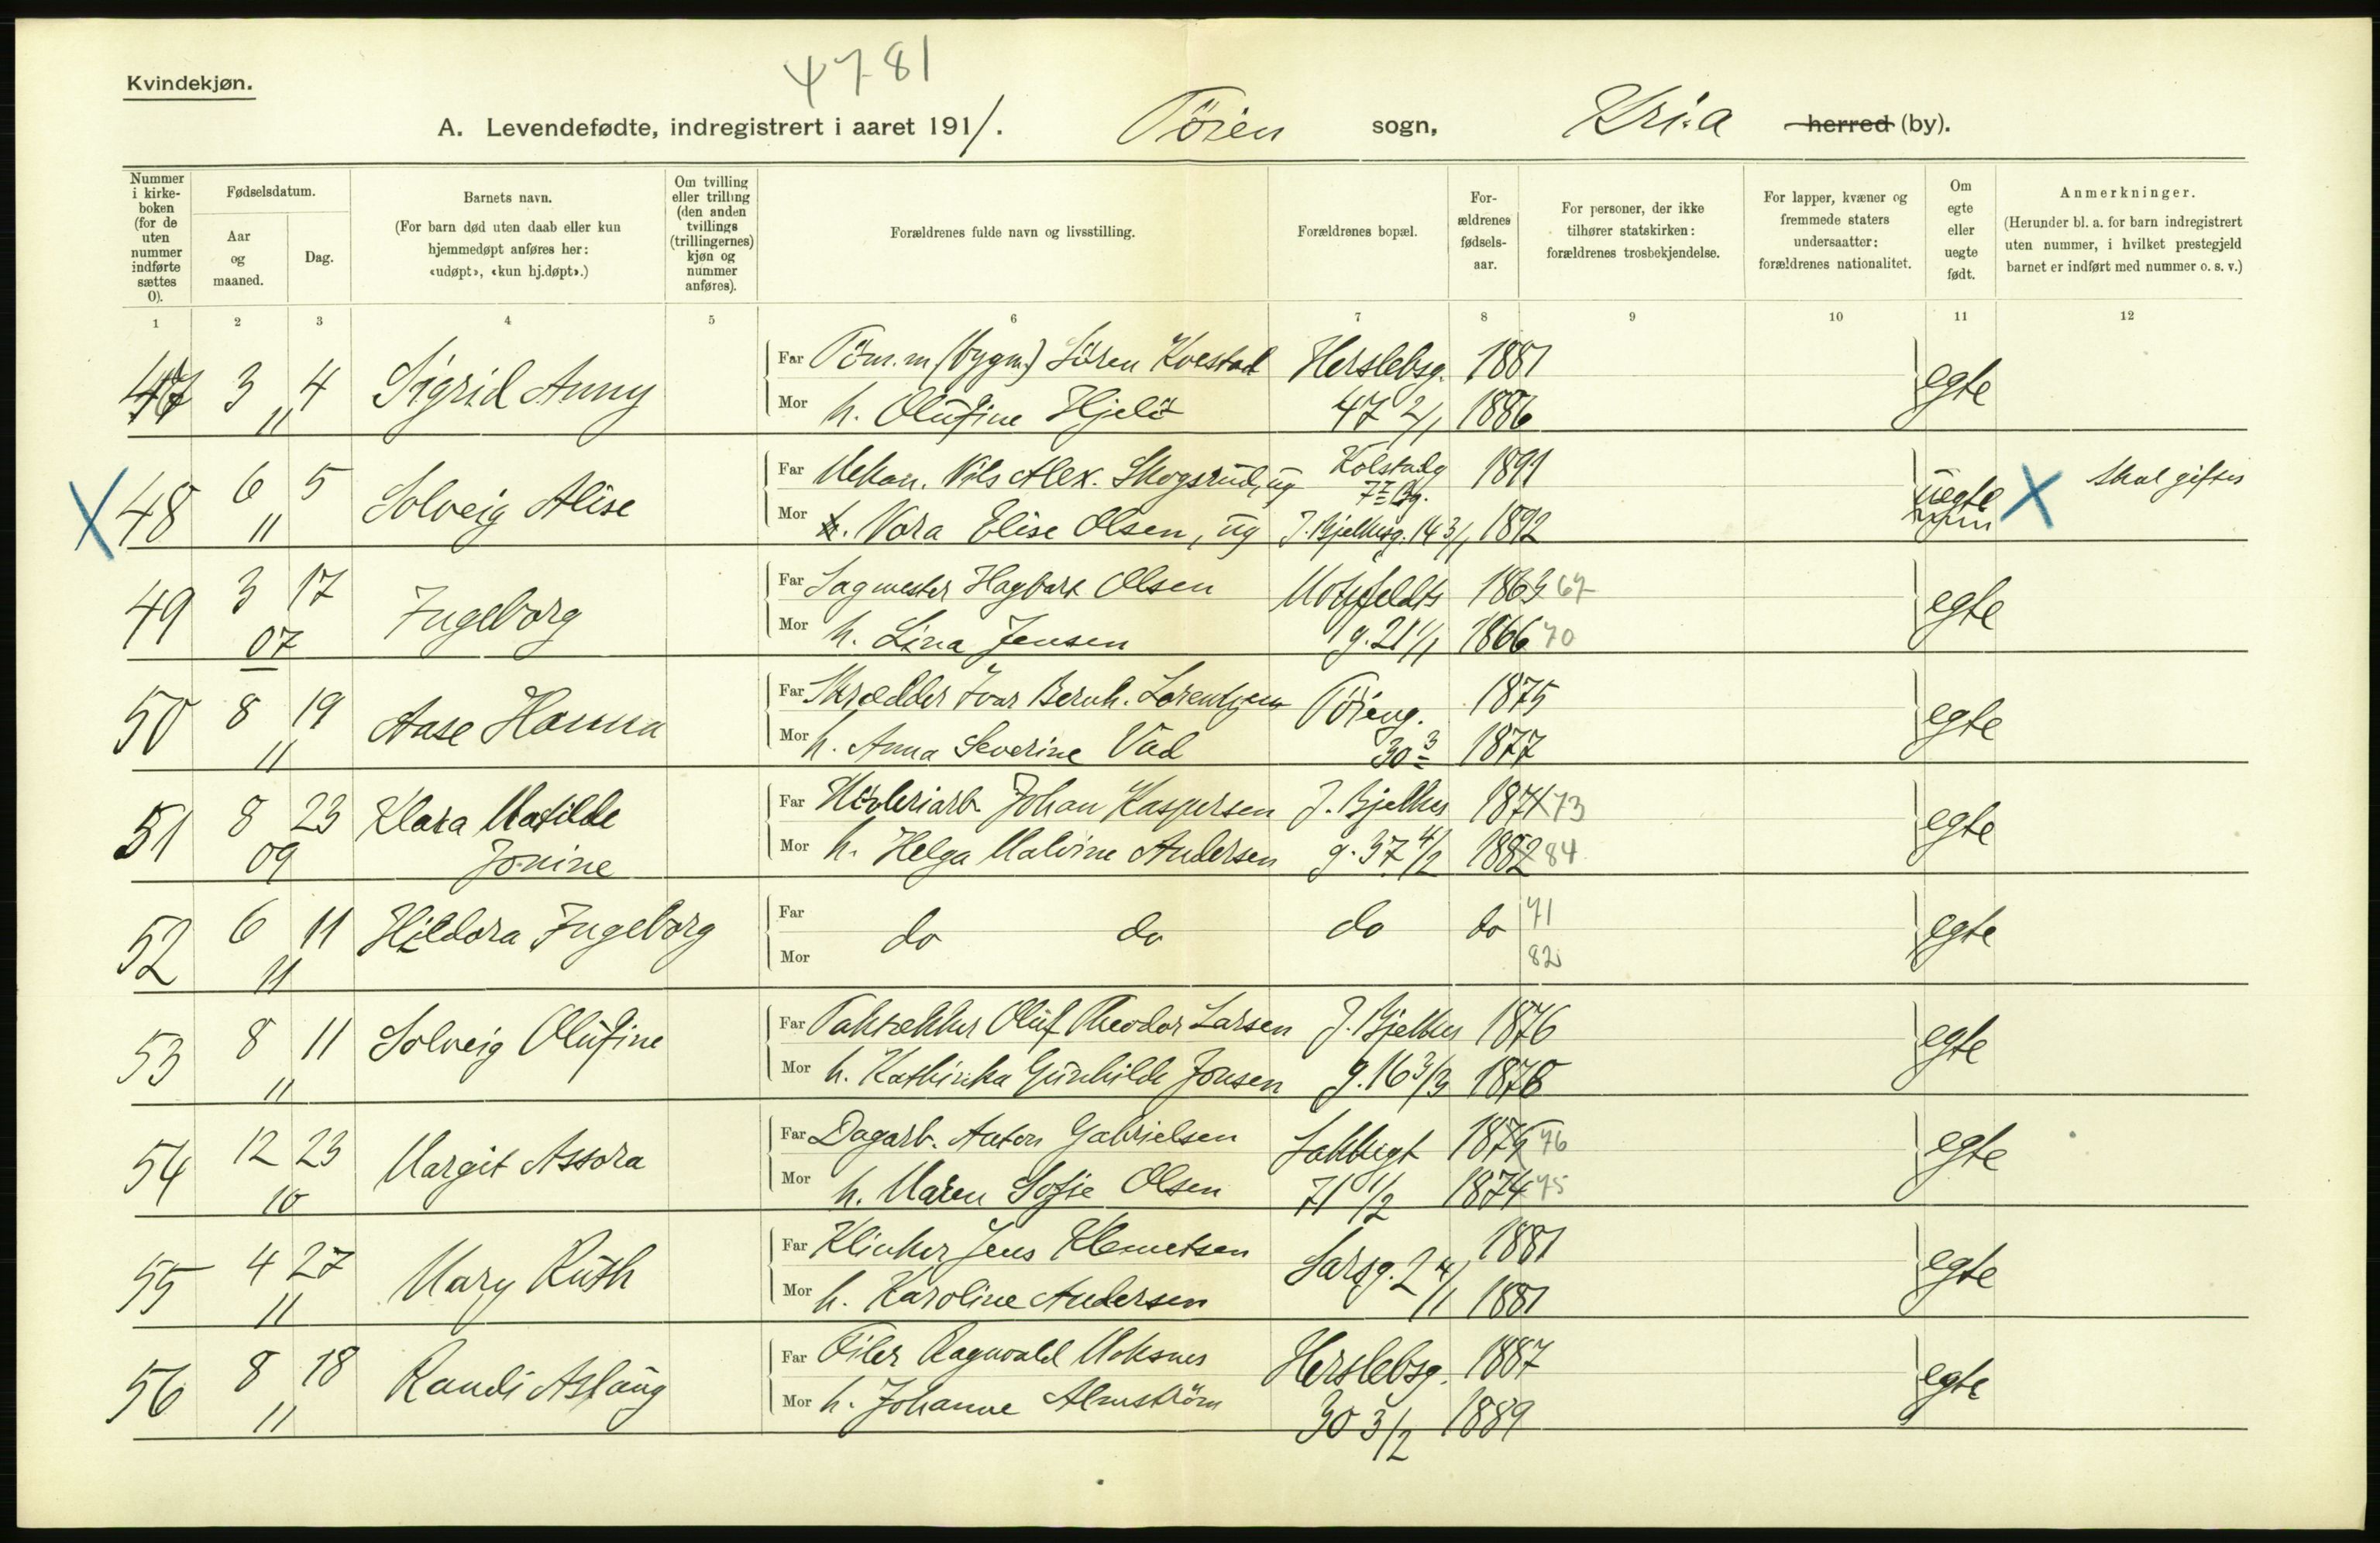 4781
Kvindekjøn.
A. Levendefødte, indregistrert i aaret 1911. Töien sogn, Kri.a herred (by).
Nummer i kirkeboken (for de uten nummer indførte sættes 0).
Fødselsdatum.
Aar og maaned.
Dag.
Barnets navn.
(For barn død uten daab eller kun hjemmedøpt anføres her: «udøpt», «kun hj.døpt».)
Om tvilling eller trilling (den anden tvillings (trillingernes) kjøn og nummer anføres).
Forældrenes fulde navn og livsstilling.
Forældrenes bopæl.
Forældrenes fødselsaar.
For personer, der ikke tilhører statskirken: forældrenes trosbekjendelse.
For lapper, kvæner og fremmede staters undersaatter: forældrenes nationalitet.
Om egte eller uegte født.
Anmerkninger.
(Herunder bl. a. for barn indregistrert uten nummer, i hvilket prestegjeld barnet er indført med nummer o. s. v.)
1 2 3 4 5 6 7 8 9 10 11 12
47 3 4 Sigrid Anny Far Töm.m (bygm) Sören Kvestad Herslebsg. 1881 egte
11 Mor h. Olufine Hjelö 47 2/1 1886
X 48 6 5 Solveig Alise Far Mekan. Nils Alex. Skogsrud, ug Kolstadg 7 II Og. 1891 uegte X Skal giftes
11 Mor Nora Elise Olsen, ug J. Bjelkesg. 14 3/1 1892
49 3 17 Ingeborg Far Sagmester Hagbart Olsen Motzfeldts 1869 67 egte
07 Mor h. Lina Jensen g. 21 1/1 1866 70
50 8 19 Aase Hanna Far Skrædder Ivar Bernh. Lorentzen Töieng. 1875 egte
11 Mor h. Anna Severine Vad 30 3 1877
51 8 23 Klara Matilde Far Johan Kaspersen J. Bjelkes 1871 73 egte
09 Jonine Mor h. Helga Malvine Andersen g. 37 4/2 1882 84
52 6 11 Hildora Ingeborg Far do do do do 71 egte
11 Mor 82
53 8 11 Solveig Olufine Far Taktækker Oluf Theodor Larsen J. Bjelkes 1876 egte
11 Mor h. Kathinka Gunhilde Jonsen g. 16 3/3 1878
54 12 23 Margit Assora Far Dagarb. Anton Gabrielsen Lakkegt 1875 76 egte
10 Mor h. Maren Sofie Olsen 71 1/2 1874 75
55 4 27 Mary Ruth Far Klinker Jens Klemetsen Sarsg. 2 4/1 1881 egte
11 Mor h. Karoline Andersen 1881
56 8 18 Randi Aslaug Far Filer Ragnvald Moksnes Herslebsg. 1887 egte
11 Mor h. Johanne Almström 30 3/2 1889